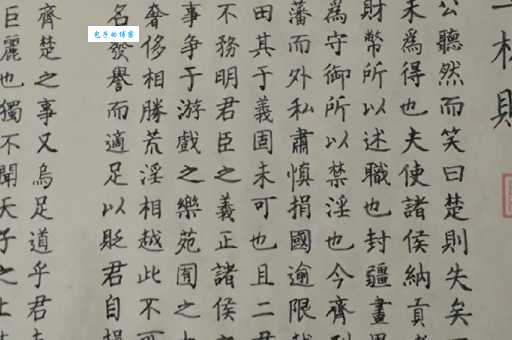 林
公聽然而笑曰楚則失矣
未為得也夫使諸侯納貢
財幣所以述職也封疆畫
為守御所以禁淫也今齊列
藩而外私肅慎捐國逾限越
田其于義固未可也且二君
不務明君臣之義正諸侯之
事爭于游戲之樂苑囿之
奢侈相勝荒淫相越此不可
名發譽而適足以貶君自損
齊楚之事又烏足道乎君未
巨麗也獨不聞天子之上